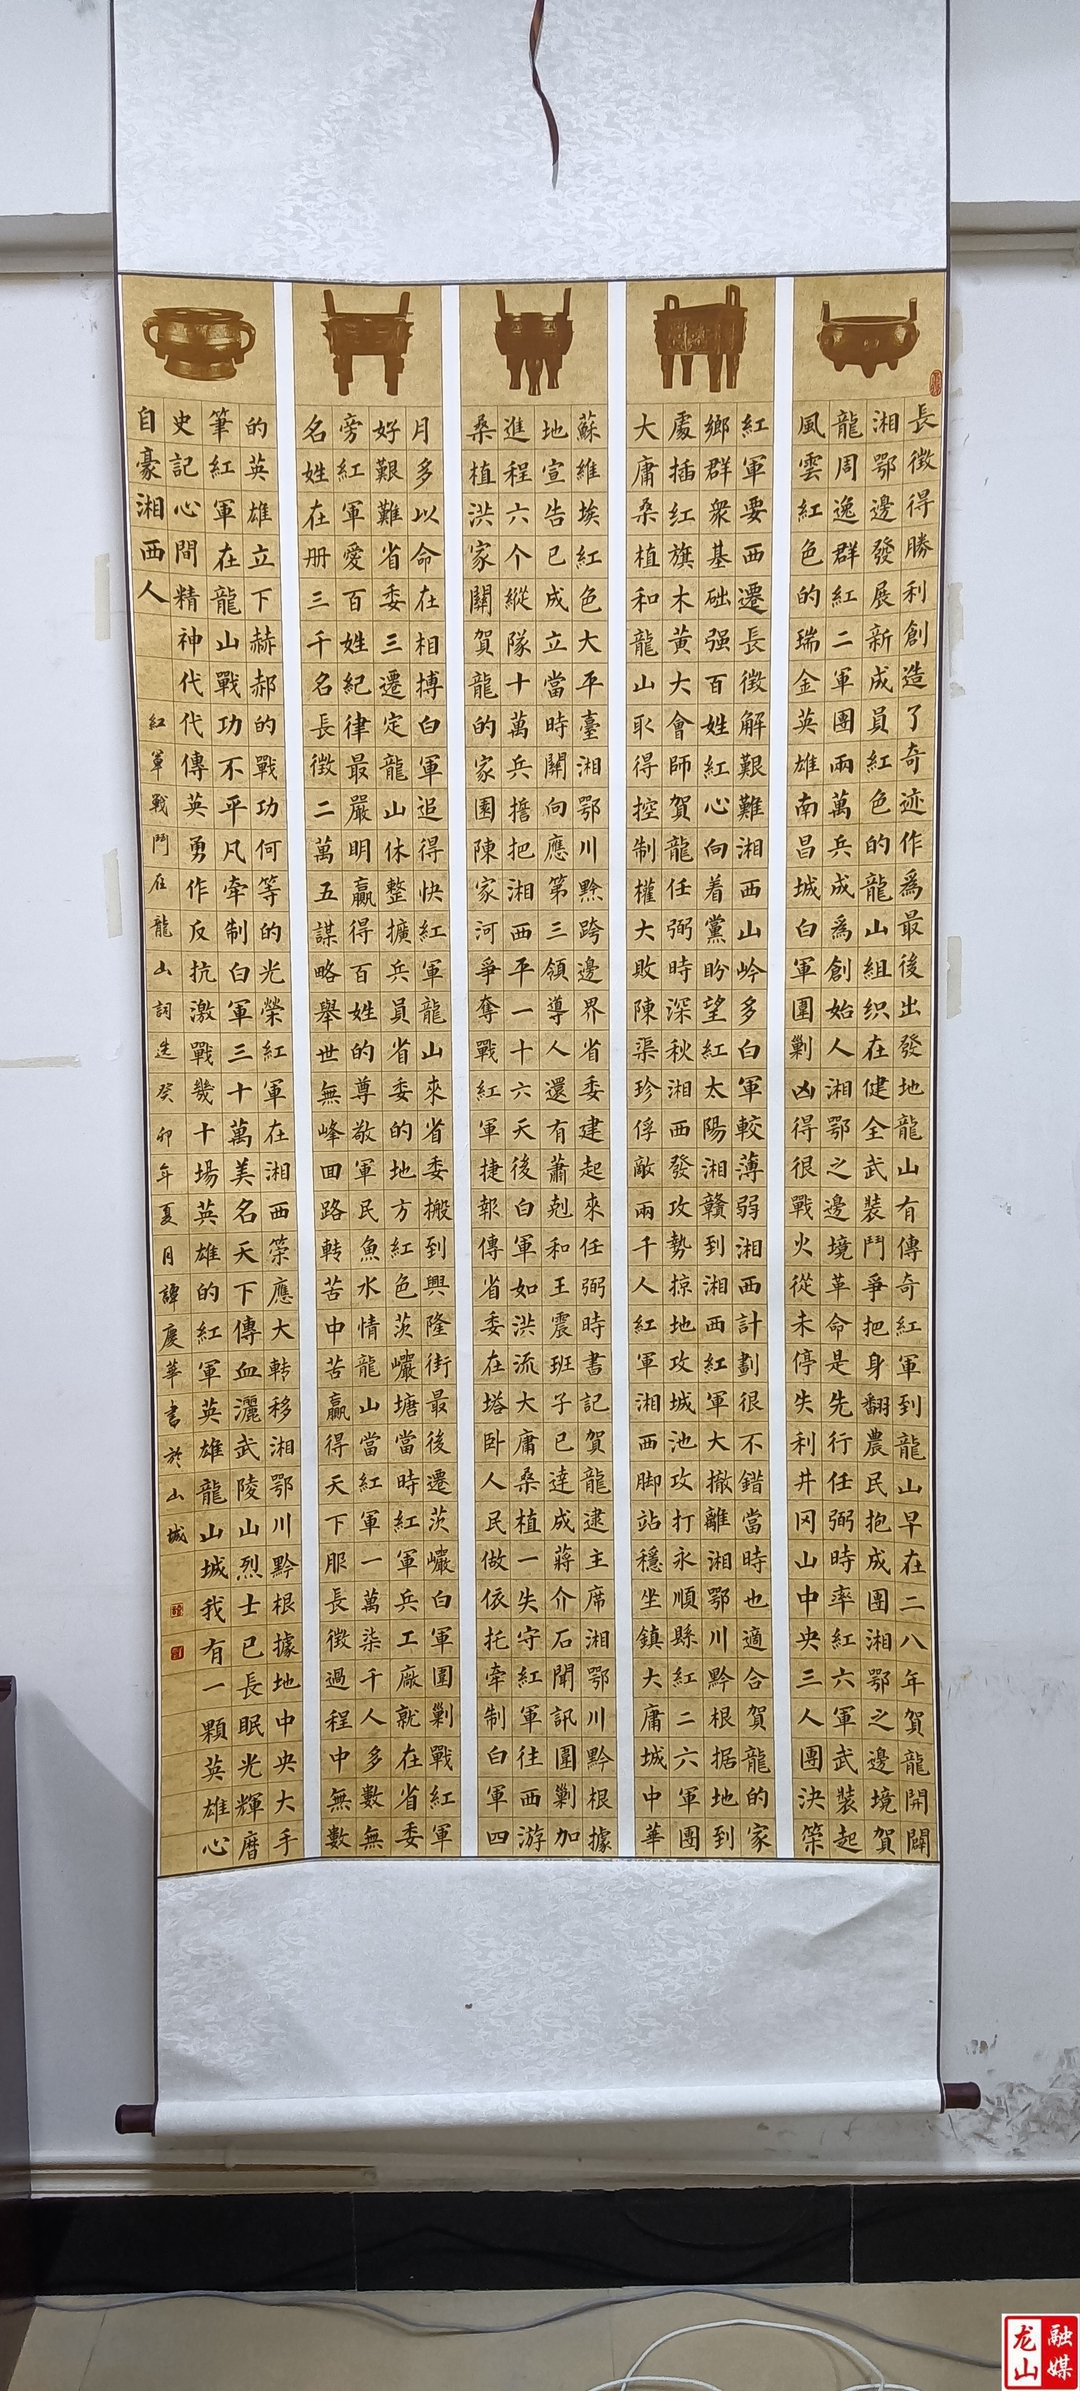 長徵得勝利創造了奇迹作爲最後出發地龍山有傳奇紅軍到龍山早在二八年賀龍開闢
湘鄂邊發展新成員紅色的龍山組织在健全武裝鬥爭把身翻農民抱成團湘鄂之邊境賀
龍周逸群紅二軍團兩萬兵成爲創始人湘鄂之邊境革命是先行任弼時率紅六軍武裝起
風雲紅色的瑞金英雄南昌城白軍圍剿凶得很戰火從未停失利井冈山中央三人團決策
紅軍要西遷長徵解艱難湘西山岭多白軍較薄弱湘西計劃很不錯當時也適合賀龍的家
鄉群衆基础强百姓紅心向着黨盼望紅太陽湘赣到湘西紅軍大撤離湘鄂川黔根据地到
處插红旗木黃大會師賀龍任弼時深秋湘西發攻勢掠地攻城池攻打永順縣紅二六軍團
大庸桑植和龍山取得控制權大敗陳渠珍俘敵兩千人紅軍湘西脚站穩坐鎮大庸城中華
蘇維埃紅色大平臺湘鄂川黔跨邊界省委建起來任弼時書記賀龍逮主席湘鄂川黔根據
地宣告已成立當時關向應第三領導人還有蕭剋和王震班子已達成蔣介石聞訊圍剿加
進程六个縱隊十萬兵擔把湘西平一十六天後白軍如洪流大庸桑植一失守紅軍往西游
桑植洪家關賀龍的家園陳家河爭奪戰紅軍捷報傳省委在塔卧人民做依托牽制白軍四
月多以命在相搏白軍追得快紅軍龍山來省委搬到興隆街最後遷茨巖白軍圍剿戰紅軍
好艱難省委三遷定龍山休整擴兵員省委的地方紅色茨巖塘當時紅軍兵工廠就在省委
旁紅軍愛百姓紀律最嚴明贏得百姓的尊敬軍民魚水情龍山當紅軍一萬柒千人多數無
名姓在册三千名長徵二萬五謀略舉世無峰回路轉苦中苦贏得天下服長徵過程中無數
的英雄立下赫郝的戰功何等的光榮紅軍在湘西策應大轉移湘鄂川黔根據地中央大手
筆紅軍在龍山戰功不平凡牽制白軍三十萬美名天下傳血灑武陵山烈士已長眠光輝曆
史記心間精神代代傳英勇作反抗激戰幾十場英雄的紅軍英雄龍山城我有一顆英雄心
自豪湘西人
紅軍戰鬥在龍山詞選癸卯年夏月譚慶華書於山城
龙山
融媒